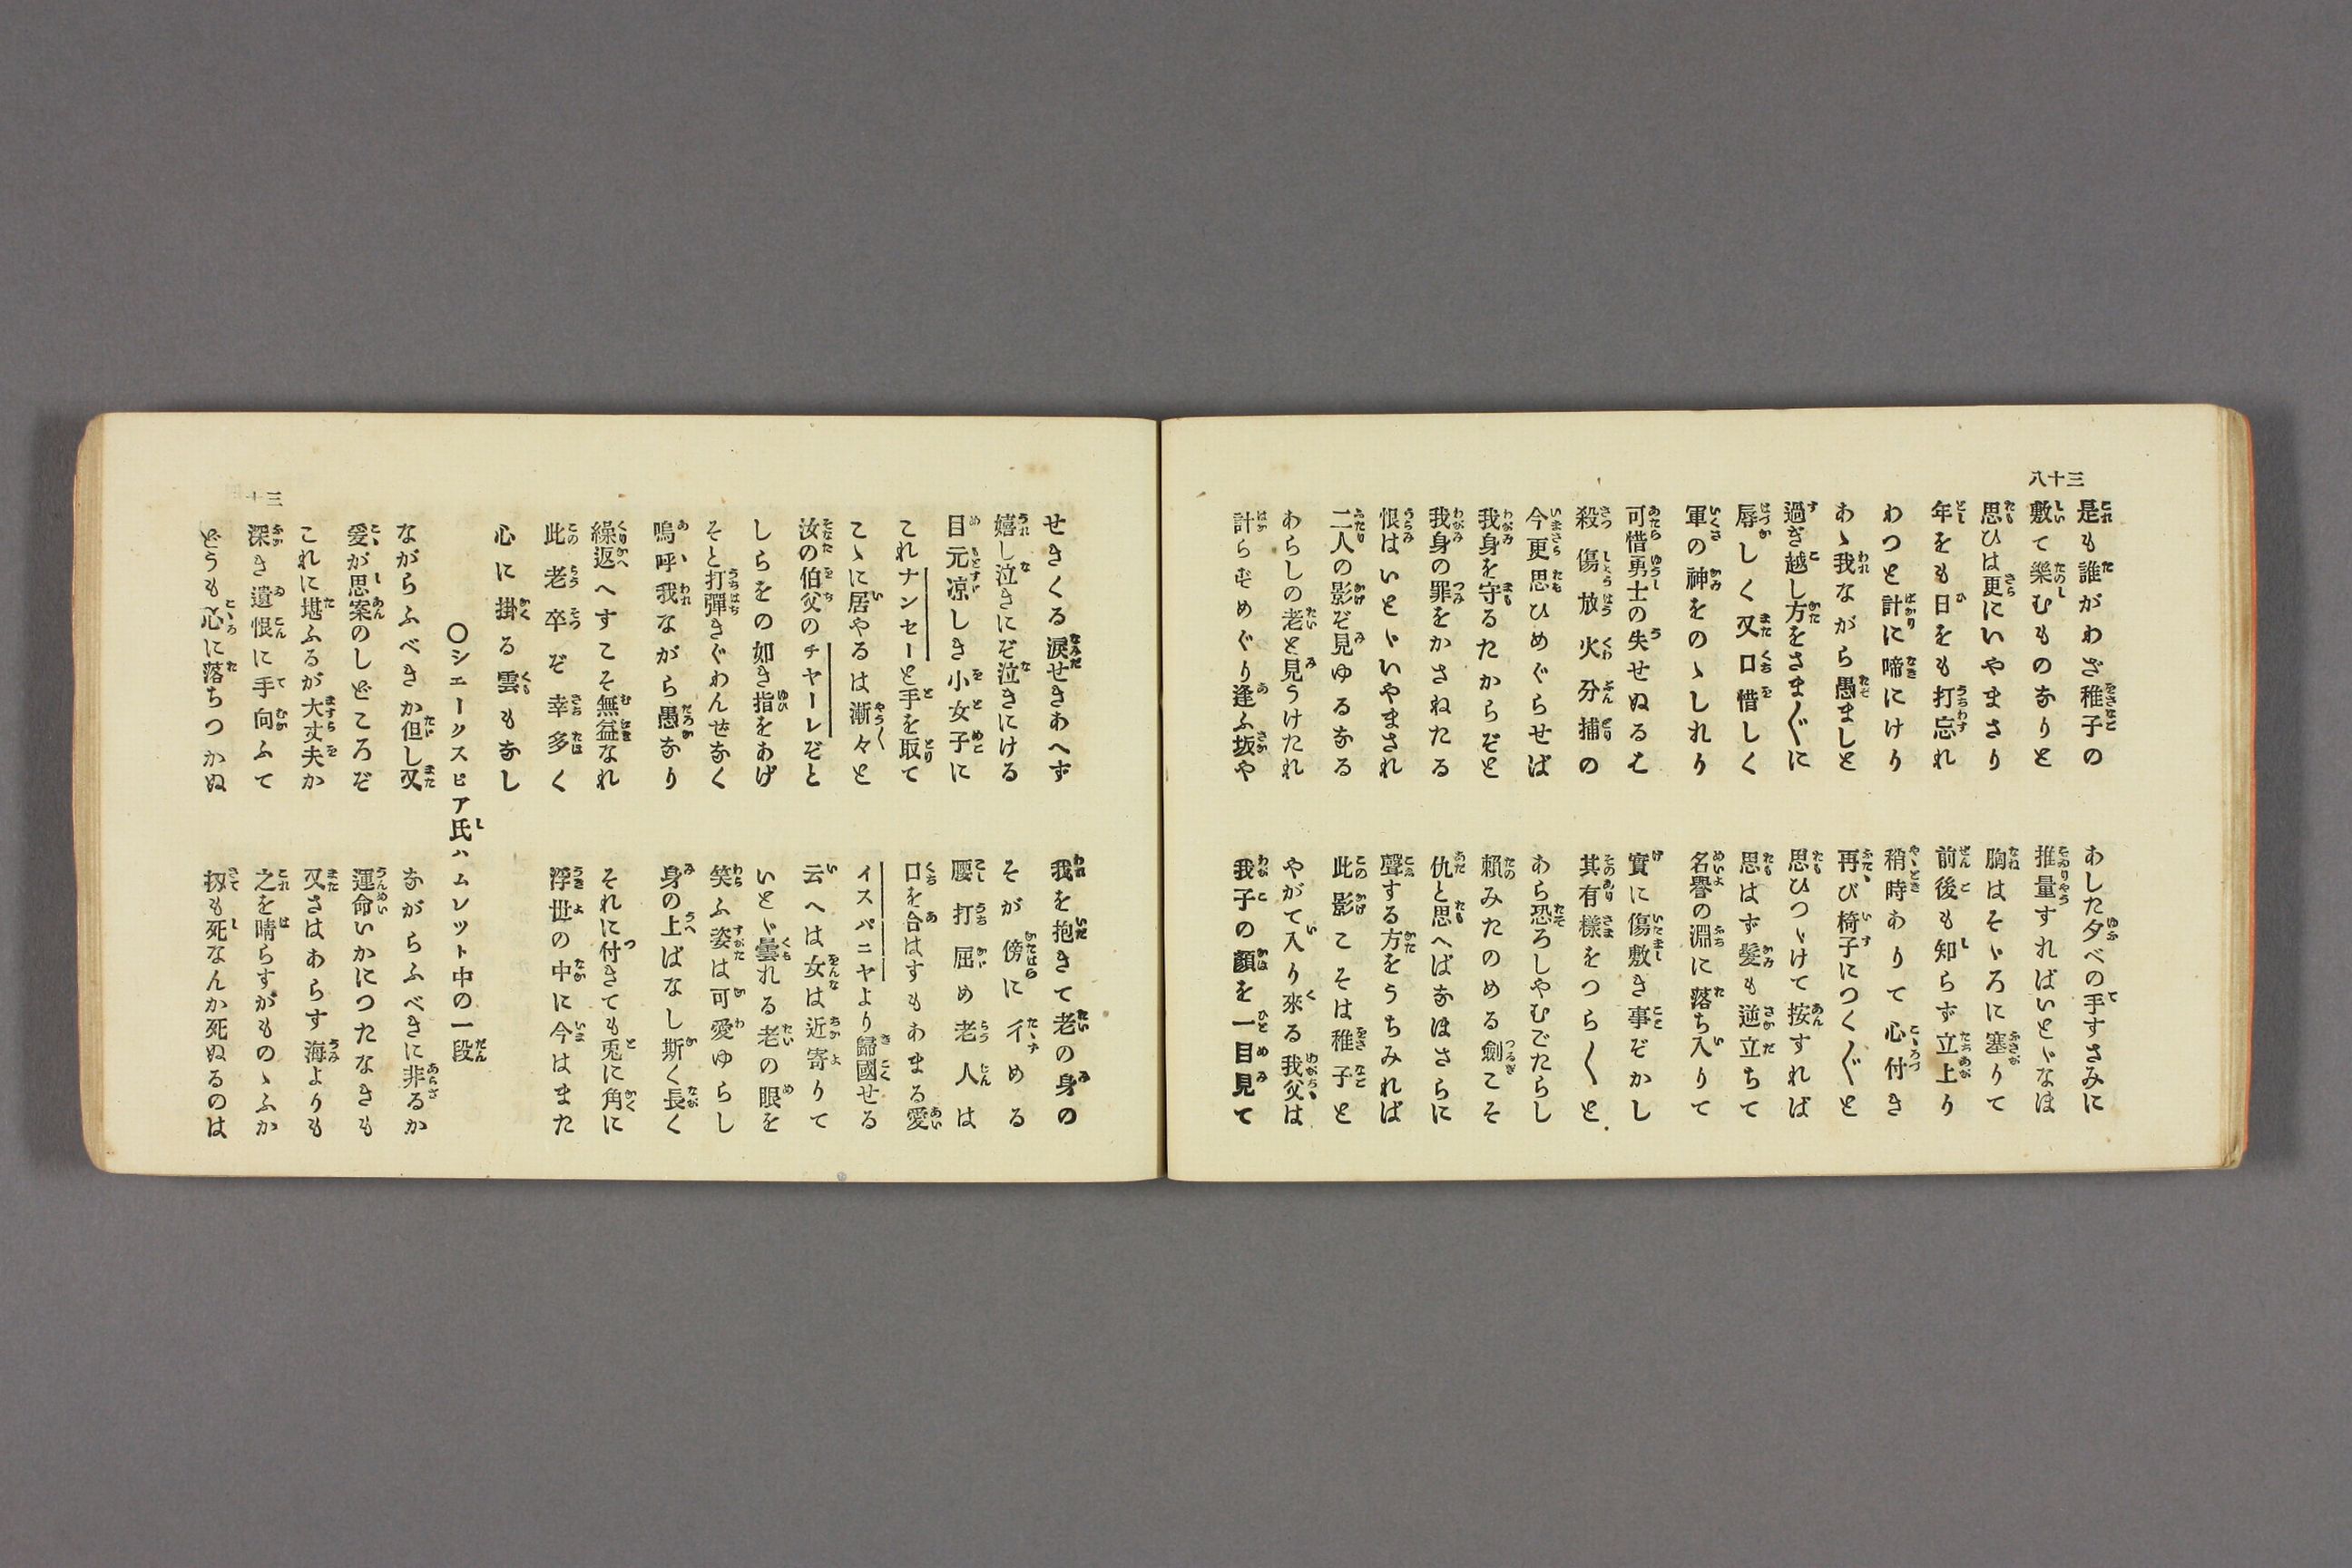 三十八
是も誰がわざ稚子の
あした夕べの手すさみに
敷て樂むものなりと
推量すればいとゞなほ
思ひは更にいやまさり
胸はそゞろに塞りて
年をも日をも打忘れ
前後も知らず立上り
わつと計に啼にけり
稍時ありて心付き
あゝ我ながら愚ましと
再び椅子につく〲と
過ぎ越し方をさま〲に
思ひつゞけて按すれば
辱しく又口惜しく
思はず髮も逆立ちて
軍の神をのゝしれり
名譽の淵に落ち入りて
可惜勇士の失せぬるも
實に傷敷き事ぞかし
殺傷放火分捕の
其有樣をつら〱と
今更思ひめぐらせば
あら恐ろしやむごたらし
我身を守るたからぞと
賴みたのめる劍こそ
我身の罪をかさねたる
仇と思へばなほさらに
恨はいとゞいやまされ
聲する方をうちみれば
二人の影ぞ見ゆるなる
此影こそは稚子と
あらしの老と見うけたれ
やがて入り來る我父は
計らずめぐり逢ふ坂や
我子の顏を一目見て
せきくる涙せきあへず
我を抱きて老の身の
嬉し泣きにぞ泣きにける
そが傍に彳める
目元凉しき小女子に
腰打屈め老人は
これナンセーと手を取て
口を合はすもあまる愛
こゝに居やるは漸々と
イスパニヤより歸國せる
汝の伯父のチヤーレぞと
云へは女は近寄りて
しらをの如き指をあげ
いとゞ曇れる老の眼を
そと打彈きぐわんぜなく
笑ふ姿は可愛ゆらし
嗚呼我ながら愚なり
身の上ばなし斯く長く
繰返へすこそ無益なれ
それに付きても兎に角に
此老卒ぞ幸多く
浮世の中に今はまた
心に掛る雲もなし
〇シエークスピア氏ハムレツト中の一段
ながらふべきか但し又
ながらふべきに非るか
爰が思案のしどころぞ
運命いかにつたなきも
これに堪ふるが大丈夫か
又さはあらす海よりも
三十
深き遺恨に手向ふて
之を晴らすがものゝふか
どうも心に落ちつかぬ
扨も死なんか死ぬるのは